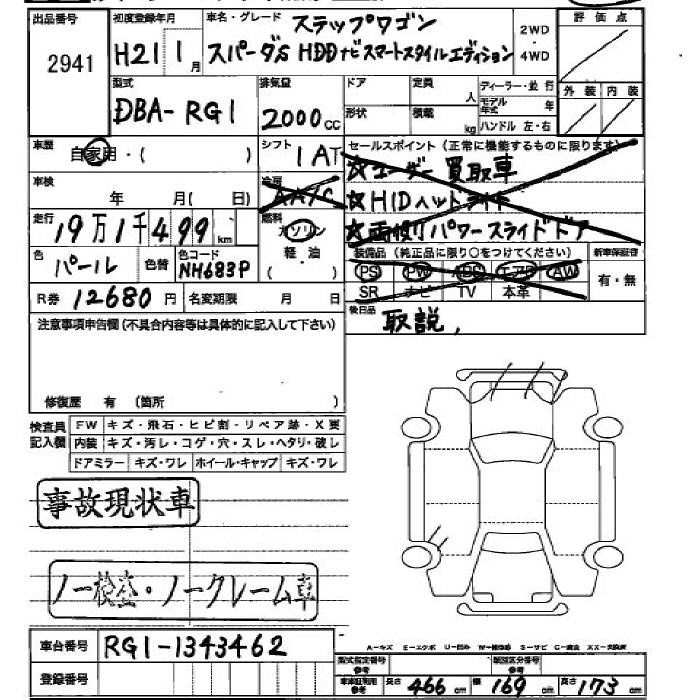 出品番号 初度登録年月 車名・グレード ステップワゴン 2WD・4WD 評価点
2941 H21 1月 スパーダS HDDナビスマートスタイルエディション
型式 排気量 ドア 定員 人 ディーラー・並行 外装 内装
DBA-RG1 2000cc 形状 積載 kg モデル年式 年
ハンドル 左・右
車歴 自家用・( ) シフト 1AT セールスポイント(正常に機能するものに限ります)
☆ユーザー買取車
車検 年 月( 日) 冷房 AA/C ☆HIDヘットライト
走行 19万1千499km 燃料 ガソリン・軽油 ☆両側パワースライドドア
装備品(純正品に限り○をつけてください) 新車保証書
色 パール 色替 色コード NH683P PS PW エアB AW 有・無
SR ナビ TV 本革
R券 12680円 名変期限 月 日 後日品 取説,
注意事項申告欄(不具合内容等は具体的に記入して下さい)
修復歴 有 (箇所
検査員記入欄 FW キズ・飛石・ヒビ割・リペア跡・X要
内装 キズ・汚レ・コゲ・穴・スレ・ヘタリ・破レ
ドアミラー キズ・ワレ ホイール・キャップ キズ・ワレ
事故現状車
ノー検査・ノークレーム車
A-キズ E-エクボ U-凹み S-サビ
車台番号 RG1-1343462
型式指定番号 参考 類別区分番号 参考
登録番号 車車証利用 参考 長さ 466cm 幅 169cm 高さ 173cm